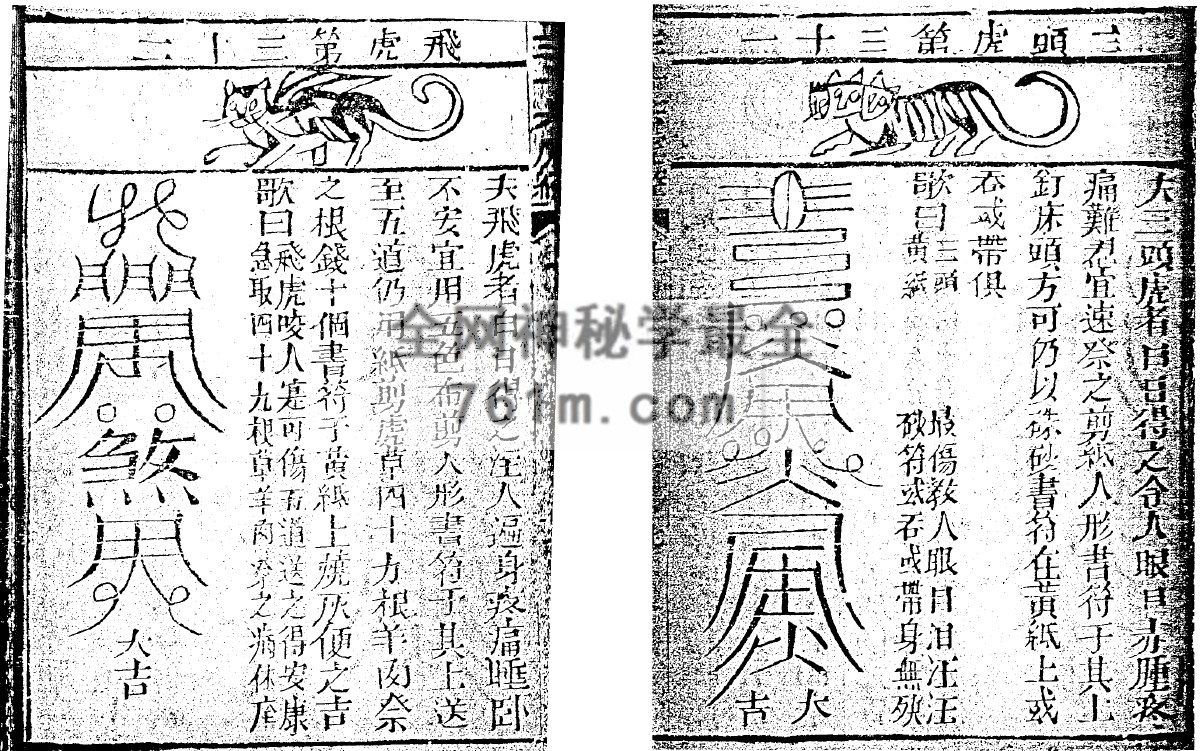 三頭虎第三十一
夫三頭虎者日日得之令人眼目赤腫疼
痛難忍宜速祭之剪紙人形書符于其上
釘床頭方可仍以硃砂書符在黃紙上或
吞或帶俱
歌曰三頭 最傷教人眼目泪汪汪
黃紙 砂符或吞或帶身無殃
大吉
飛虎第三十二
夫飛虎者白日得之 人遍身疼痛睡卧
不安宜用五色布剪人形書符于其上送
至五道仍用紙剪虎草四十九根羊肉祭
之根錢十個書符于黃紙上燒灰便之吉
歌曰飛虎咬人寔可傷五道送之得安康
急取四十九根草羊肉祭之病休
大吉
全网神秘学最全
761m.com